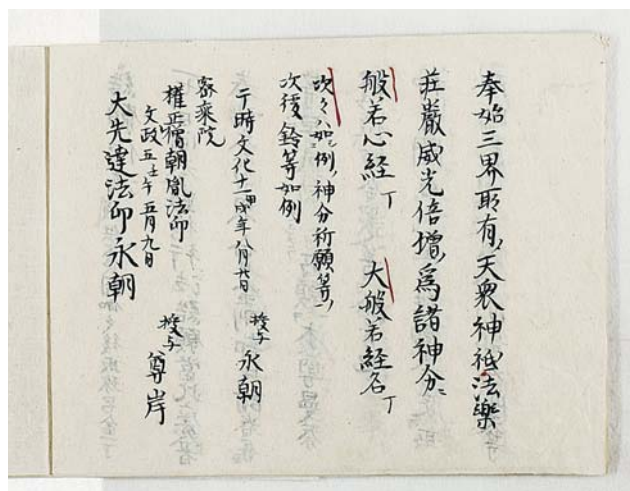 奉始三界取有天衆神祗法樂
莊嚴威光倍増爲諸神分ニ
般若心経丁 大般若経名丁
次々八如例神分祈願等
次後鈴等如例
于時文化十一甲戌年八月廿日 授与 永朝
密乘院
権正僧朝胤法印
文政五壬午五月九日 授与 尊岸
大先達法印永朝